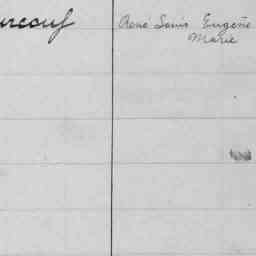 urcouf René Louis Eugène
Marie